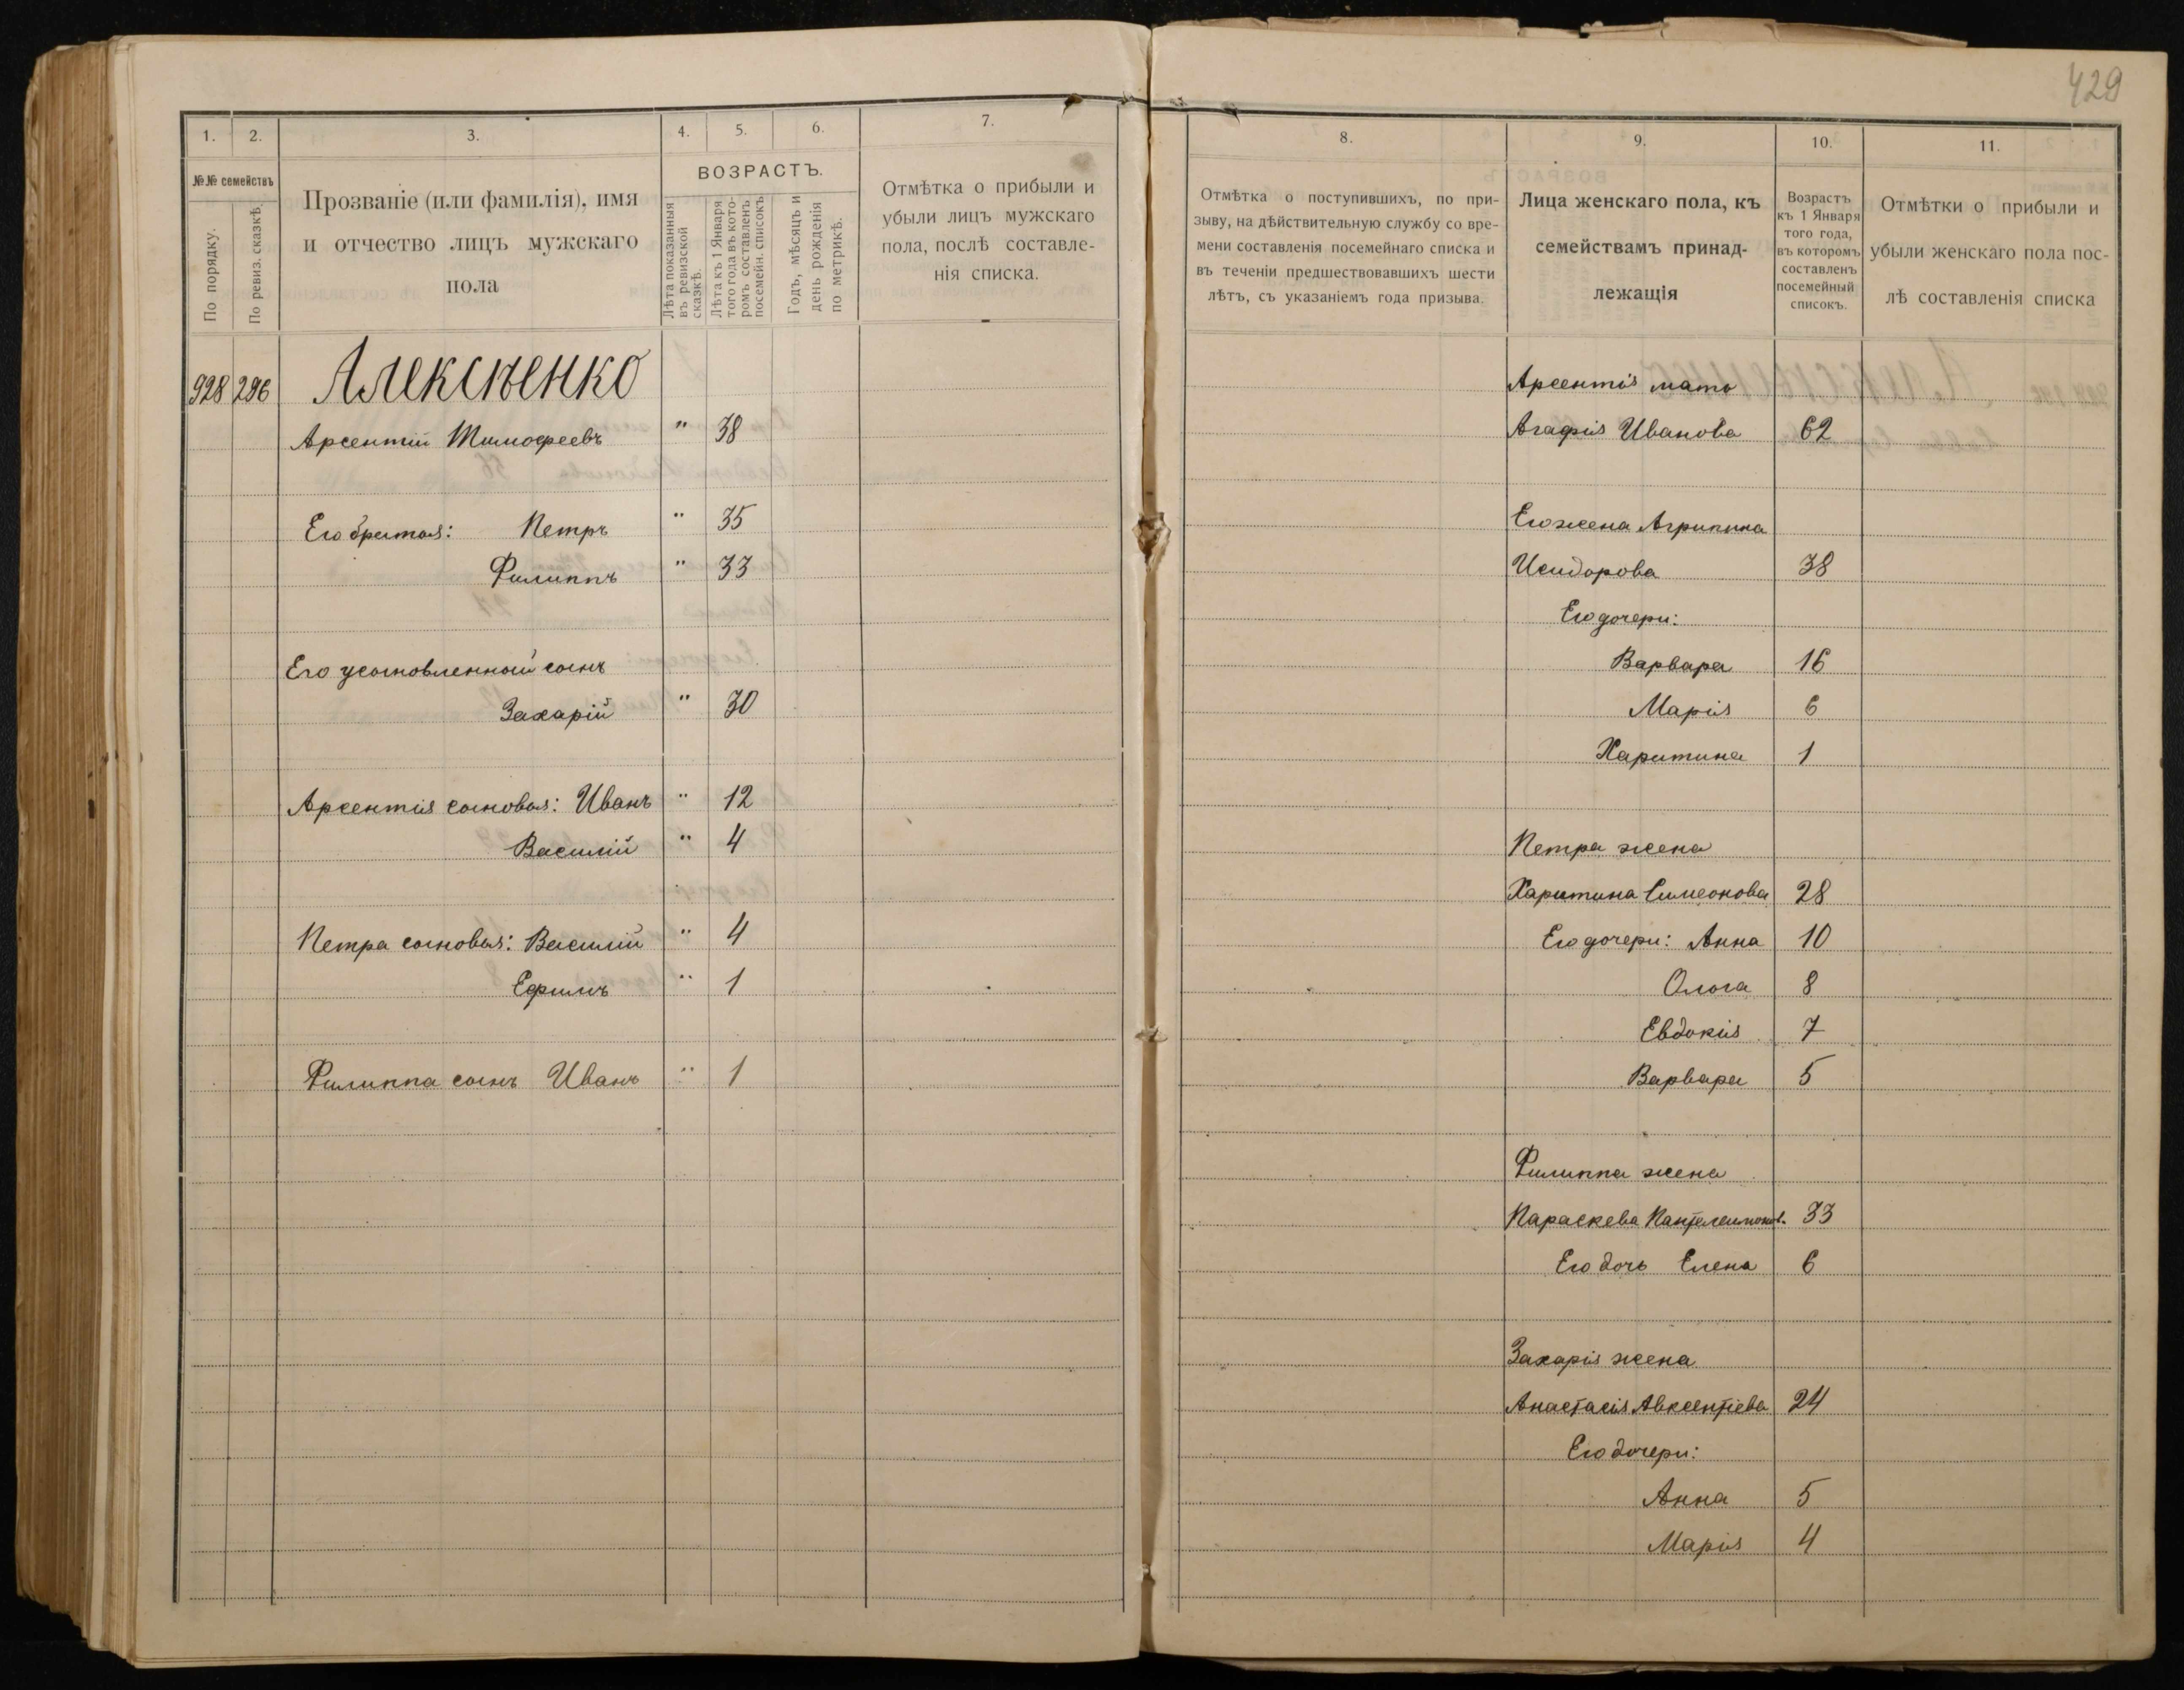 429
1.
2.
3.
4.
5.
6.
7.
№№ семействъ
По порядку.
По ревиз. сказкѣ.
Прозваніе (или фамилія), имя
и отчество лицъ мужскаго
пола
ВОЗРАСТЪ.
Лѣта показанныя
въ ревизской
сказкѣ.
Лѣта къ 1 Января
того года въ кото-
ромъ составленъ
посемейн. списокъ
Годъ, мѣсяцъ и
день рожденія
по метрикѣ.
Отмѣтка о прибыли и
убыли лицъ мужскаго
пола, послѣ составле-
нія списка.
928 296 Алексѣенко
Арсентій Тимофеевъ " 38
Его братья: Петръ " 35
Филиппъ " 33
Его усыновленный сынъ
Захарій " 30
Арсентія сыновья: Иванъ " 12
Василій " 4
Петра сыновья: Василій " 4
Ефимъ " 1
Филиппа сынъ Иванъ " 1
8.
9.
10.
11.
Отмѣтка о поступившихъ, по при-
зыву, на дѣйствительную службу со вре-
мени составленія посемейнаго списка и
въ теченіи предшествовавшихъ шести
лѣтъ, съ указаніемъ года призыва.
Лица женскаго пола, къ
семействамъ принад-
лежащія
Возрастъ
къ 1 Января
того года,
въ которомъ
составленъ
посемейный
списокъ.
Отмѣтки о прибыли и
убыли женскаго пола пос-
лѣ составленія списка
Арсентія мать
Агафія Иванова 62
Его жена Агрипина
Исидорова 38
Его дочери:
Варвара 16
Марія 6
Харитина 1
Петра жена
Харитина Симеонова 28
Его дочери: Анна 10
Ольга 8
Евдокія 7
Варвара 5
Филиппа жена
Параскева Пантелеимонов. 33
Его дочь Елена 6
Захарія жена
Анастасія Авксентіева 24
Его дочери:
Анна 5
Марія 4